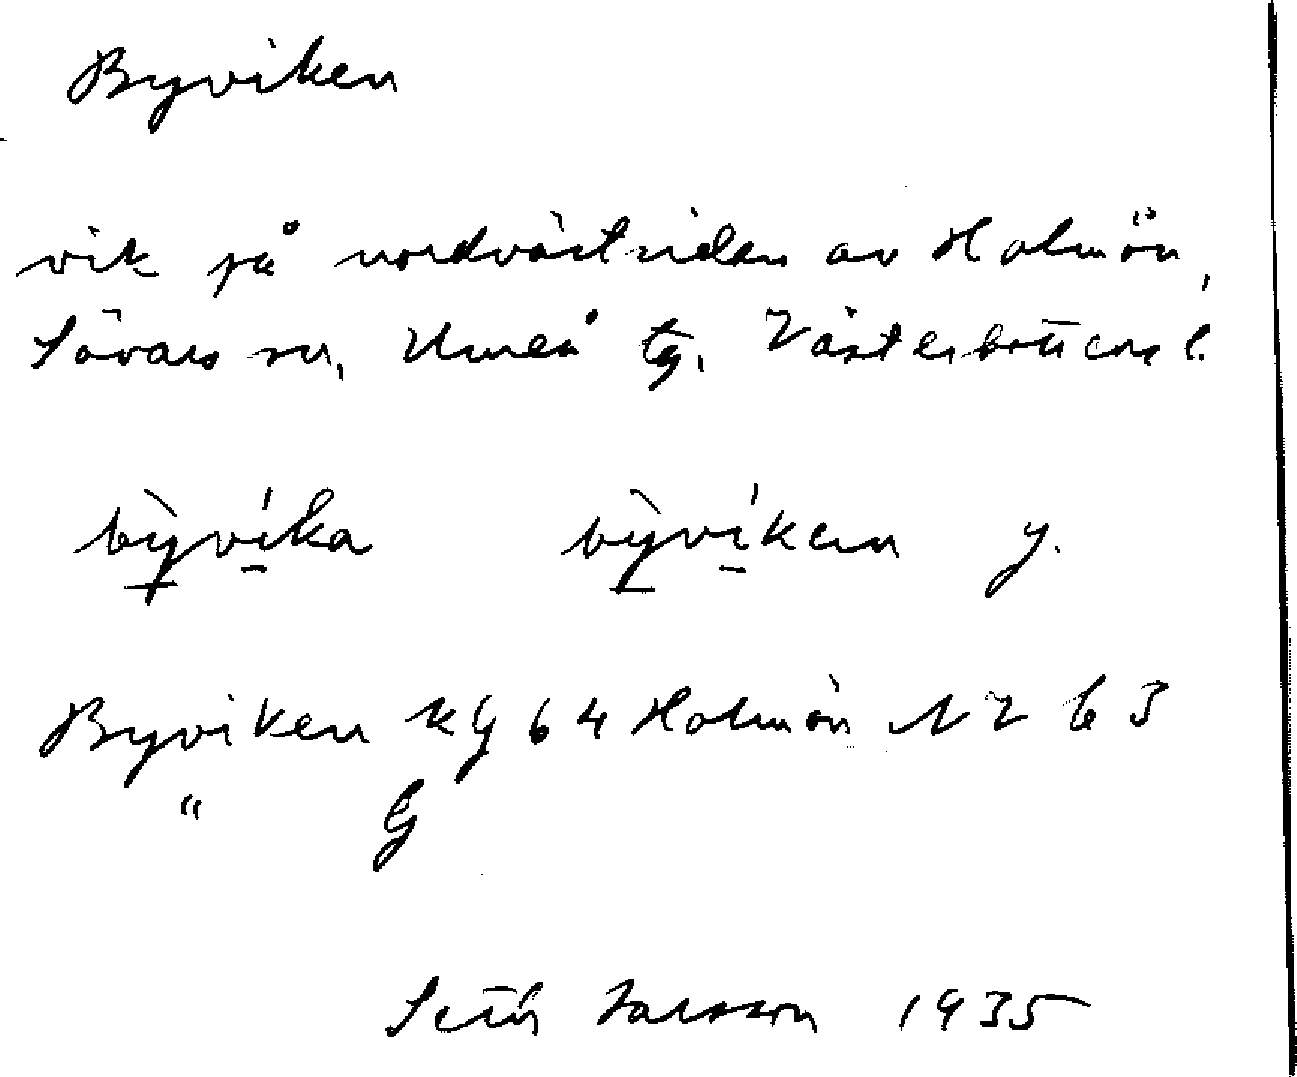 Byviken
vik på nordvästsidan av Holmön,
Sävars sn, Umeå tg. Västerbottens l.
bỳvíka bỳvíken y.
Byviken KG 64 Holmön NZ 63
" G
Seth Larsson 1935